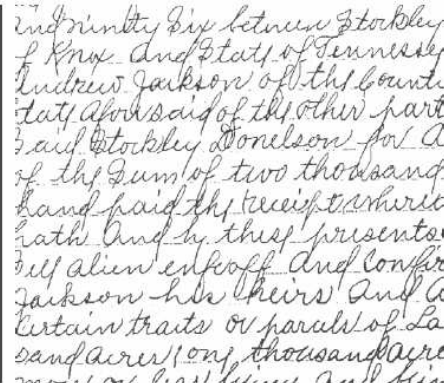 and ninity Six between Stockley
of Knox and State of Tennessee
Andrew Jackson of the County
State aforesaid of the other part
Said Stockley Donelson for a
of the Sum of two thousand
hand paid the receipt wherin
hath and by these presents
Sell alien enfeoff and Confir
Jackson his heirs and a
Certain traits or parcels of La
sand acres one thousand acre
more or less lying and bein